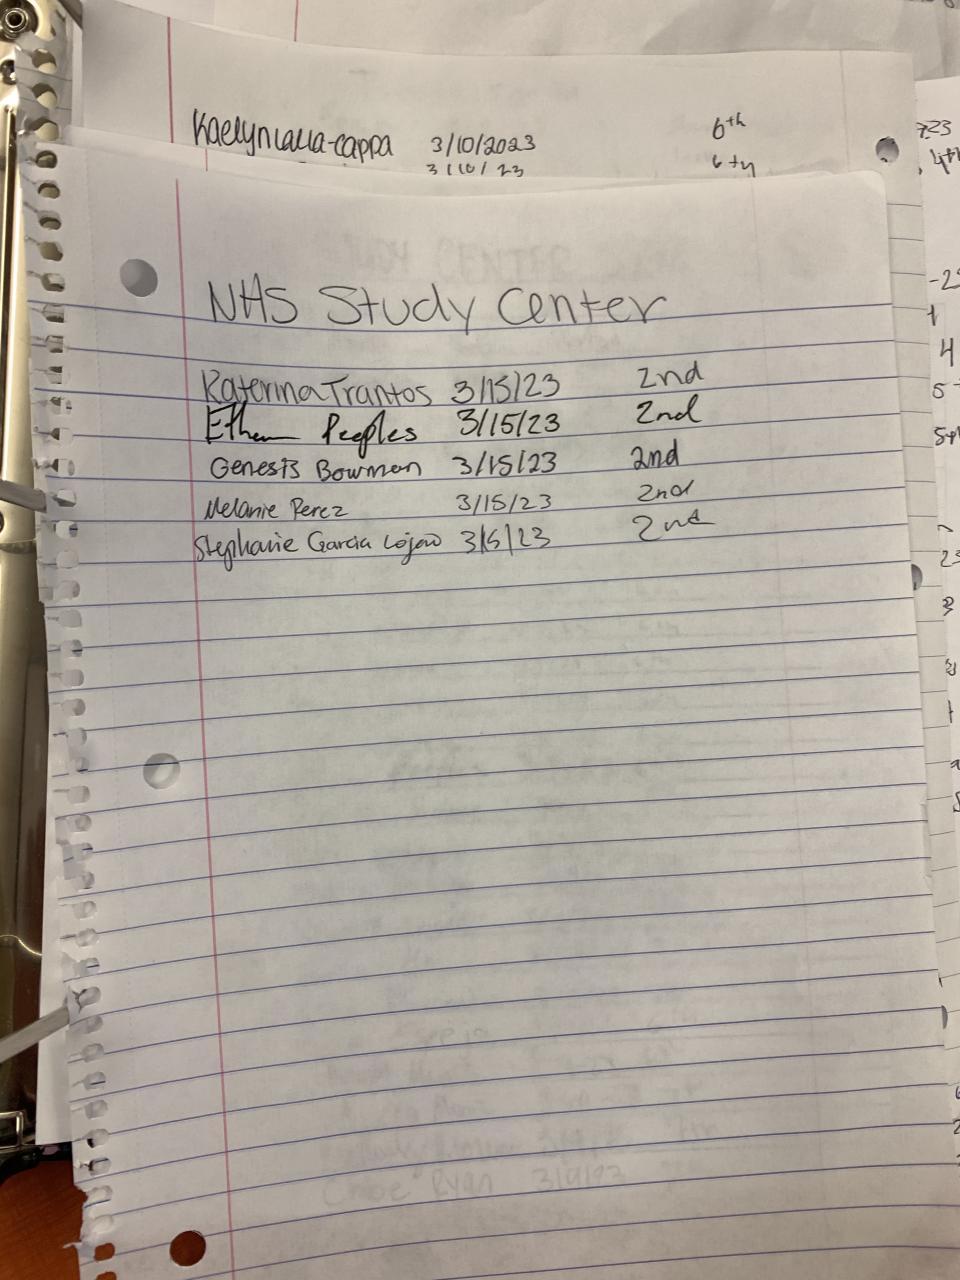 3/10/2023 6th
3/10/23 6th
NHS Study Center
Katerina Trantos 3/15/23 2nd
Ethan Peeples 3/15/23 2nd
Genesis Bowman 3/15/23 2nd
Melanie Perez 3/15/23 2nd
Stephanie Garcia 3/5/23 2nd
Chloe Ryan 3/9/23